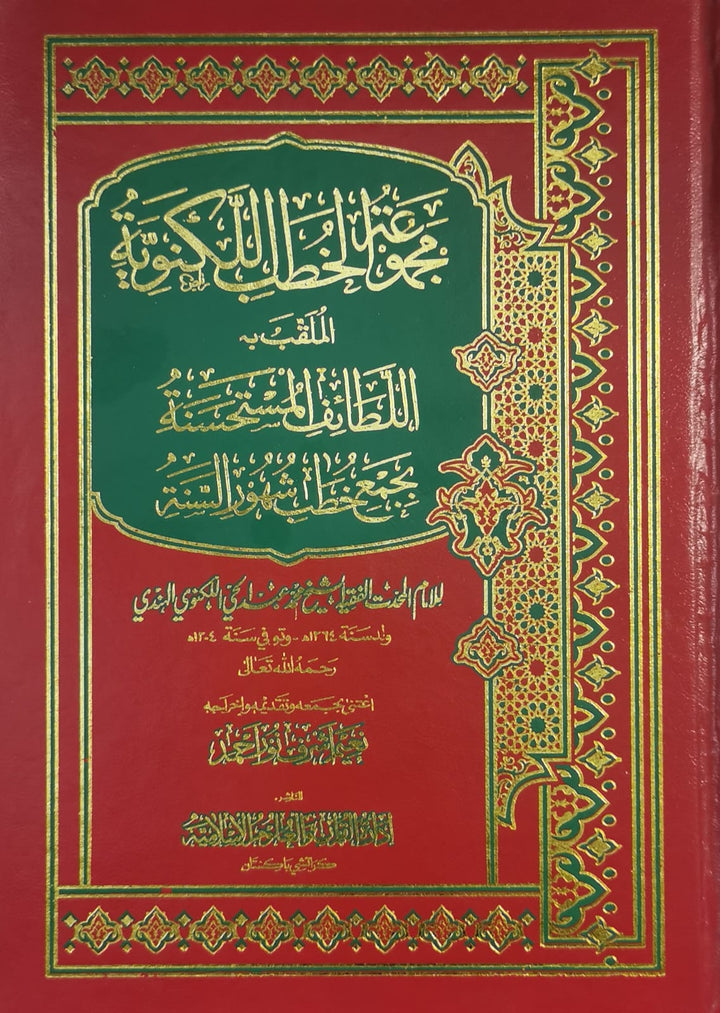 مجموعة الخُطَب اللَّكْنَوِيَّة
المُلَقَّبَ بـ
اللَّطَائِفِ المُسْتَحْسَنَةُ
بِجَمْعِ خُطَبِ شُهُوْرِ السَّنَةِ
للإمام المحدث الفقيه الشيخ محمد عبد الحي اللكنوي الهندي
ولد سنة ١٢٦٤هـ - وتوفي سنة ١٣٠٤هـ
رحمه الله تعالى
اعتنى بجمعه وتقديمه وإخراجه
نعيم أشرف نور أحمد
الناشر
إدارة القرآن والعلوم الإسلامية
كراتشي باكستان